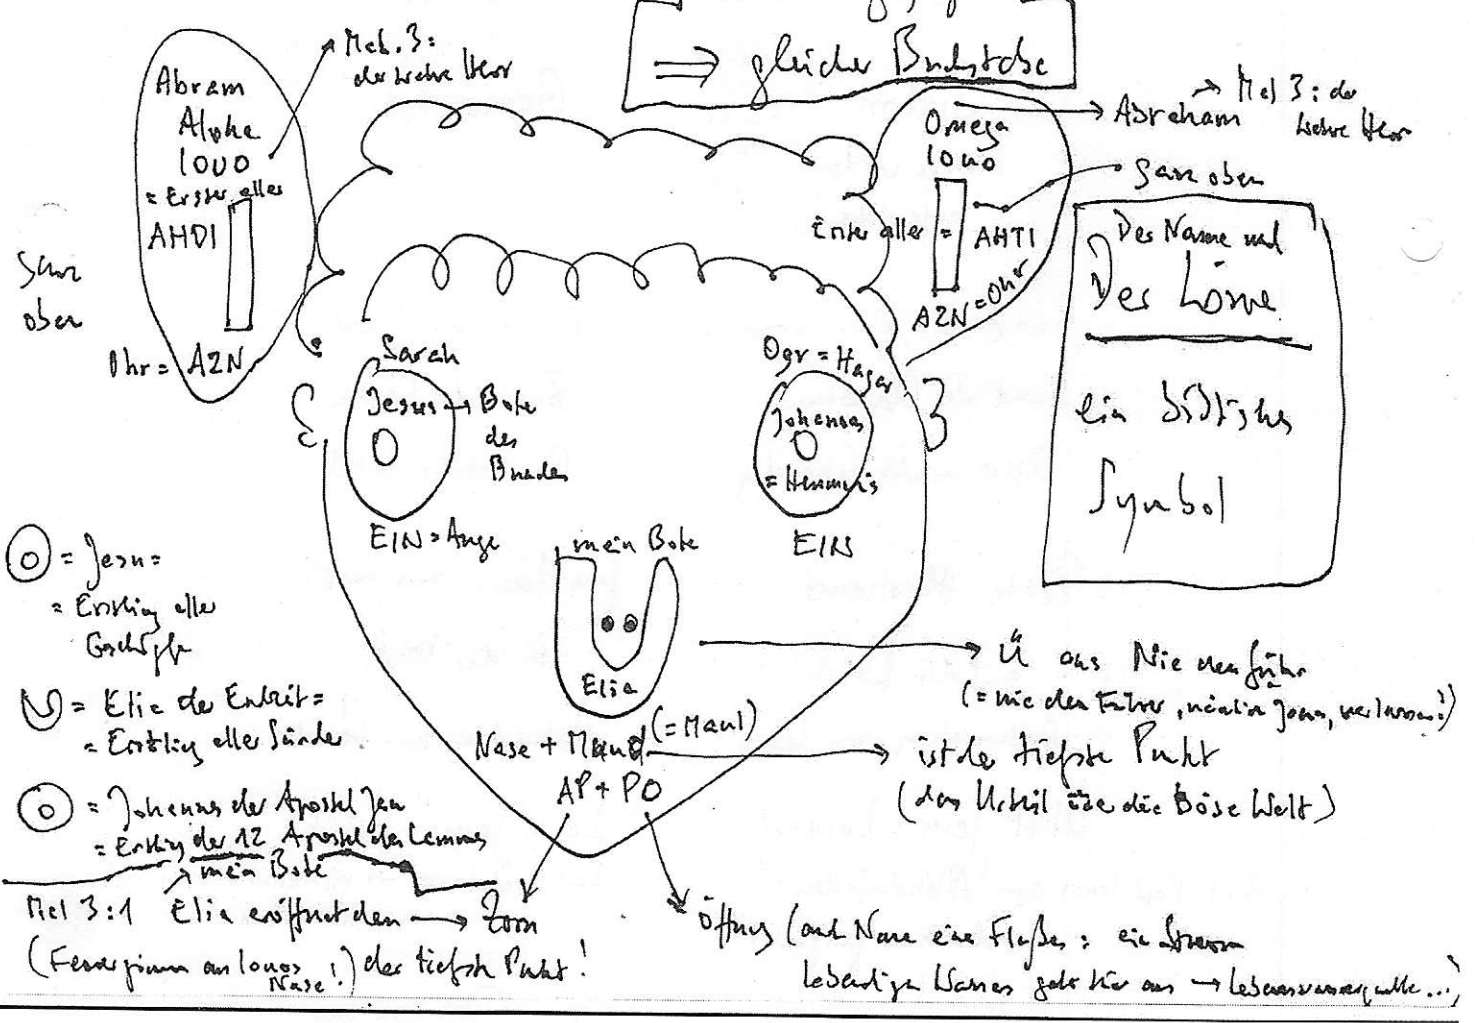 ⇒ gleicher Buchstabe
Abram
Alpha
IOUO
= Erster aller
AHDI
Ohr = AZN
Ganz
oben
Mal. 3:
der wahre Herr
Omega
IOUO
Erster aller =
AHTI
AZN = Ohr
Abraham
Mal 3: der
wahre Herr
ganz oben
Der Name und
Der Löwe
ein bildliches
Symbol
Sarah
Jesus → Bote
des
Bundes
EIN = Auge
Ogr = Hagar
Johannes
= Hemmnis
EIN
mein Bote
Elia
Nase + Mund (= Maul)
AP + PO
= Jesu =
= Erstling aller
Geschöpfe
= Elia der Endzeit =
= Erstling aller Sünder
= Johannes der Apostel Jesu
= Erstling der 12 Apostel des Lammes
mein Bote
Mal 3:1 Elia eröffnet den → Zorn
(von IOUOs
Nase!) der tiefste Punkt!
Ü aus Nie den Führer
(= nie den Führer, nämlich verlassen!)
ist der tiefste Punkt
(das Urteil über die Böse Welt)
Öffnung (auch Name eines Flußes: ein Strom
lebendigen Wassers geht hier aus → Lebenswasserquelle...)